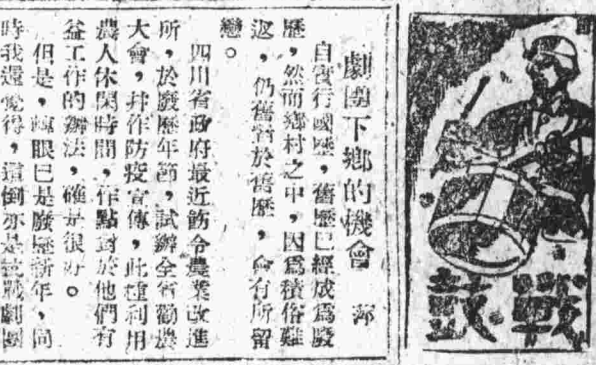 戰鼓
劇團下鄉的機會
自實行國歷，舊歷已經成爲廢
歷，然而鄉村之中，因爲積俗難
返，仍舊習於舊歷，會有所留
戀。
四川省政府最近飭令農業改進
所，於廢歷年節，試辦全省勸農
大會，幷作防疫宣傳，此種利用
農人休閑時間，作點對於他們有
益工作的辦法，確是很好。
但是，轉眼已是廢歷新年，同
時我還覺得，這倒亦是抗戰劇團